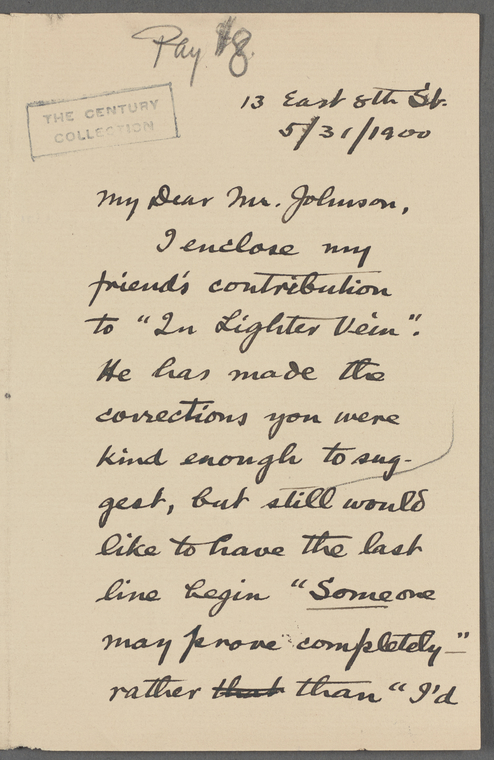 Pay $8.
THE CENTURY
COLLECTION
13 East 8th St.
5/31/1900
My Dear Mr. Johnson,
I enclose my
friend's contribution
to "In Lighter Vein".
He has made the
corrections you were
kind enough to sug-
gest, but still would
like to have the last
line begin "Someone
may prove completely—"
rather that than "I'd